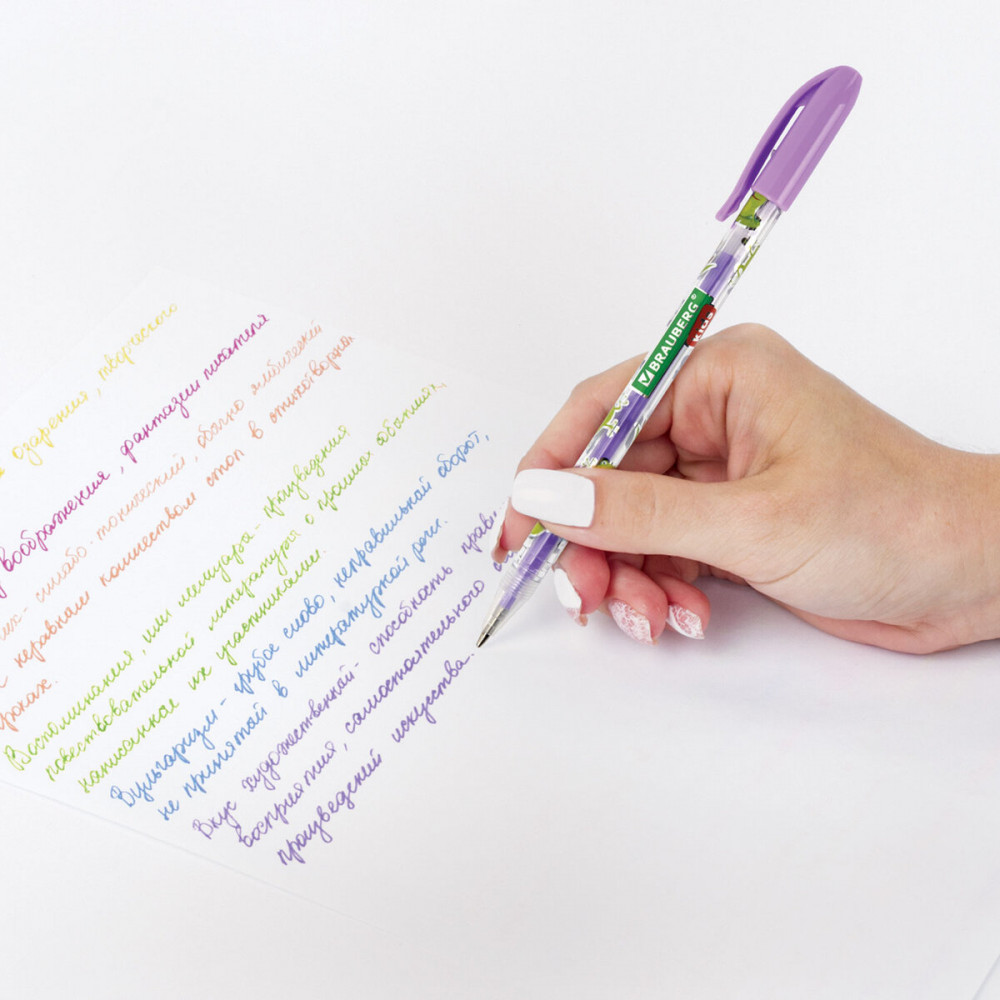 озарения, творческого
воображения, фантазии писателя
их- силлабо-тонический, обычно ямбический
с неравным количеством стоп в стихотворных
строках.
Воспоминания, или мемуары- произведения
повествовательной литературы о прошлых событиях,
написанные их участниками.
Вульгаризм- грубое слово, неправильный оборот,
не принятой в литературной речи.
Вкус художественный- способность прави
восприятия, самостоятельного
произведений искусства.
BRAUBERG
KIDS